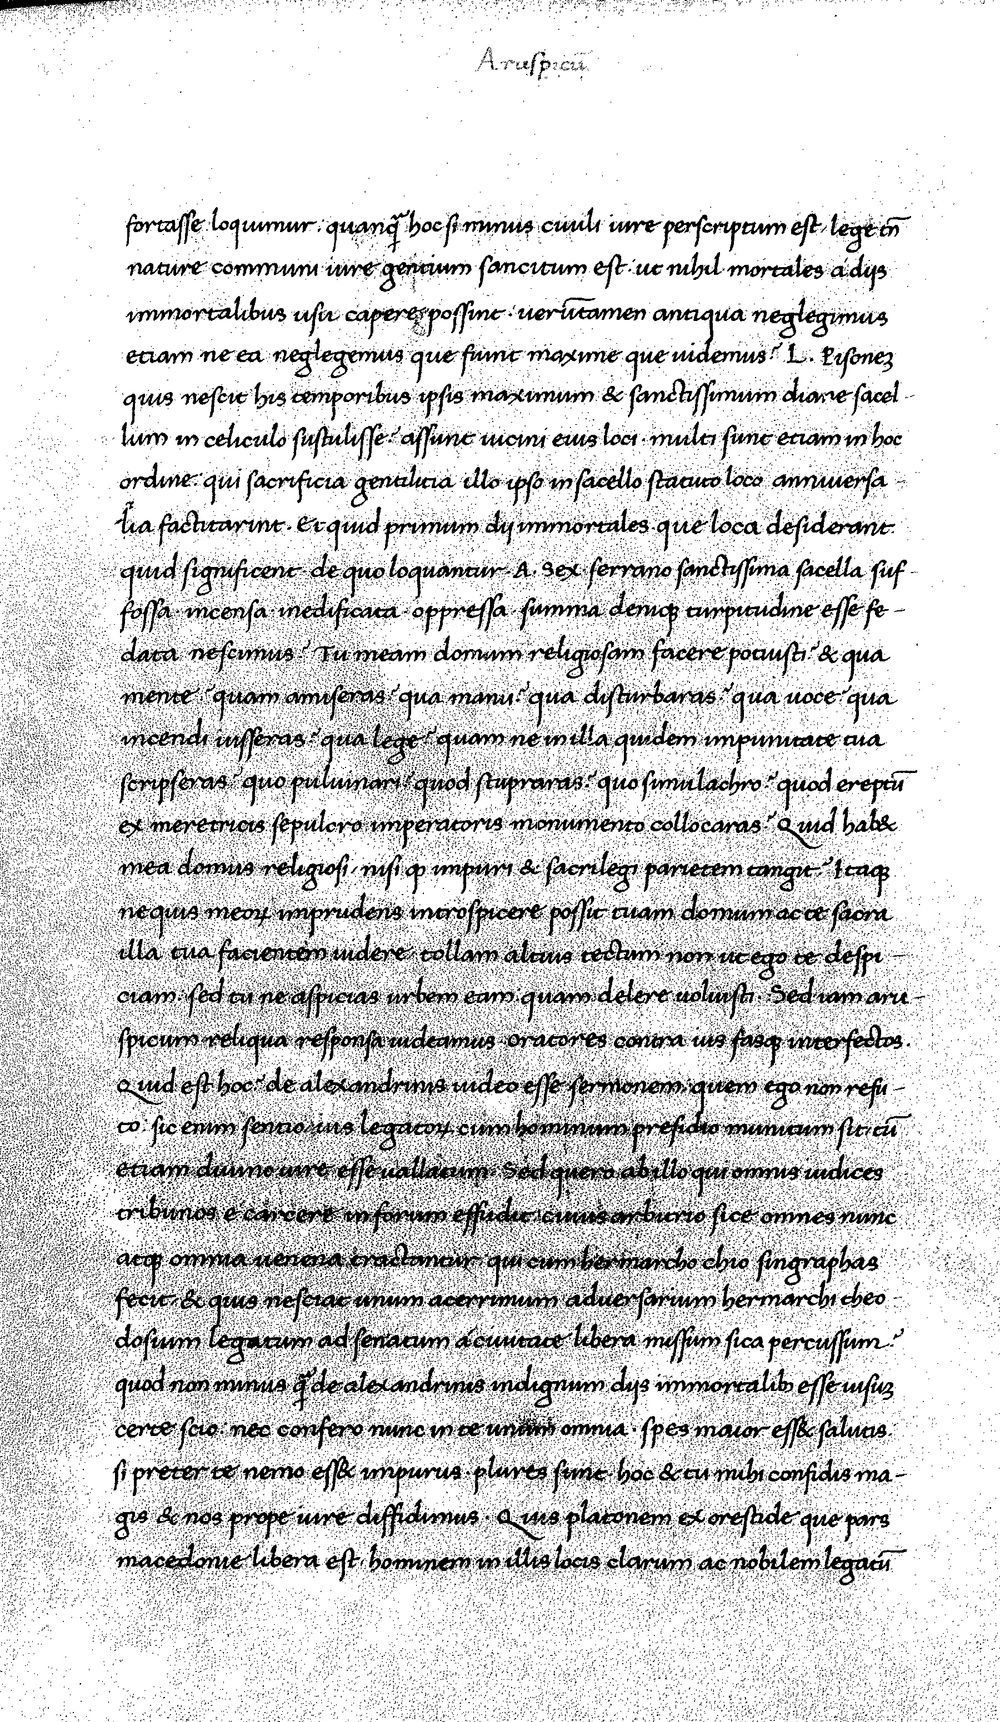 Aruspicū
fortasse loquimur · quanq̃ hoc si minus ciuili iure perscriptum est · lege tn̄
nature communi iure gentium sancitum est · ut nihil mortales a diis
immortalibus usu capere possint · uerūtamen antiqua neglegimus
etiam ne ea neglegemus que fiunt maxime que uidemus? L. Pisonez
quis nescit his temporibus ipsis maximum & sanctissimum diane sacel-
lum in celiculo sustulisse? assunt uicini eius loci · multi sunt etiam in hoc
ordine · qui sacrificia gentilitia illo ipso in sacello statuto loco anniuersa-
ria factitarint · Et quid primum dii immortales que loca desiderant
quid significent · de quo loquantur · A · Sex · serrano sanctissima sacella suf-
fossa · incensa · inedificata · oppressa · summa deniqꝫ turpitudine esse fe-
data nescimus? Tu meam domum religiosam facere potuisti? & qua
mente? quam amiseras? qua manu? qua disturbaras? qua uoce? qua
incendi iusseras? qua lege? quam ne in illa quidem impunitate tua
scripseras? quo puluinari? quod stupraras? quo simulachro? quod ereptū
ex meretricis sepulcro imperatoris monumento collocaras? Quid hab&
mea domus religiosi, nisi ꝙ impuri & sacrilegi parietem tangit? Itaqꝫ
ne quis meoꝝ imprudens introspicere possit tuam domum ac te sacra
illa tua facientem uidere · tollam altius tectum non ut ego te despi-
ciam · sed tu ne aspicias urbem eam quam delere uoluisti · Sed iam aru-
spicum reliqua responsa uideamus · oratores contra ius fasqꝫ interfectos.
Quid est hoc? de alexandrinis uideo esse sermonem · quem ego non refu-
to · sic enim sentio ius legatoꝝ cum hominum presidio munitum sit · tū
etiam diuino iure esse uallatum · Sed quero ab illo qui omnis iudices
tribunos e carcere in forum effudit · cuius arbitrio sice omnes nunc
atqꝫ omnia uenena tractantur · qui cum hermarcho chio singraphas
fecit · & quis nesciat unum acerrimum aduersarium hermarchi theo-
dosium legatum ad senatum a ciuitate libera missum sica percussum?
quod non minus q̃ de alexandrinis indignum diis immortalib esse uisuz
certe scio · nec confero nunc in te unum omnia · spes maior ess& salutis
si preter te nemo ess& impurus · plures sunt · hoc & tu mihi confidis ma-
gis & nos prope iure diffidimus · Quis platonem ex orestide que pars
macedonie libera est · hominem in illis locis clarum ac nobilem legatū